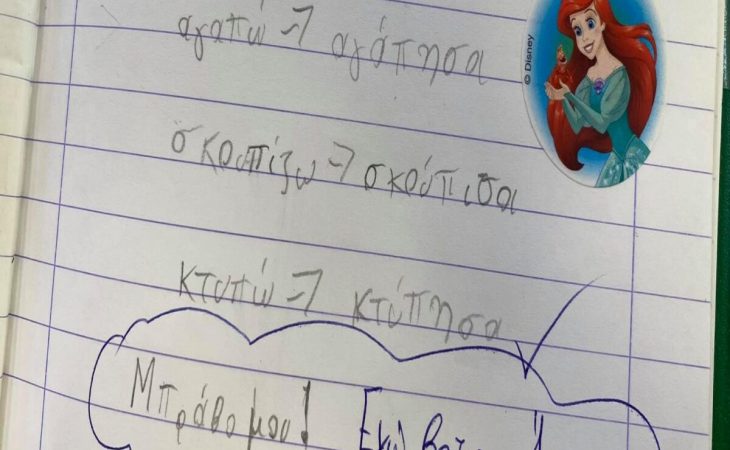 αγαπώ → αγάπησα
© Disney
σκουπίζω → σκούπισα
κτυπώ → κτύπησα
Μπράβο μου!